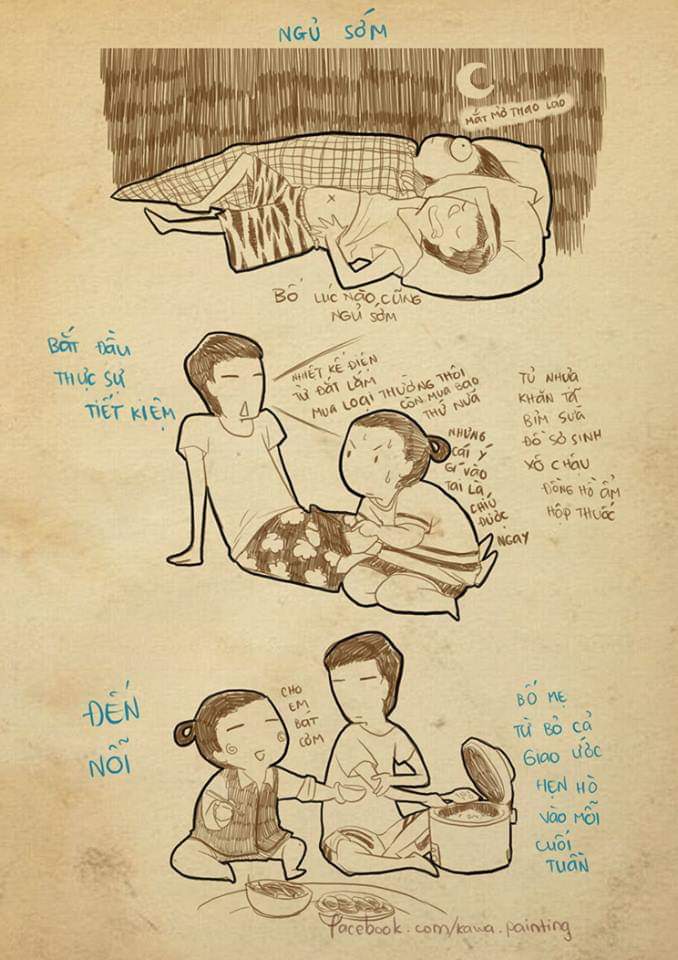 NGỦ SỚM
MẮT MỞ THAO LÁO
BỐ LÚC NÀO CŨNG
NGỦ SỚM
BẮT ĐẦU
THỰC SỰ
TIẾT KIỆM
NHIẾT KẾ ĐIỆN
TỬ ĐẮT LẮM
MUA LOẠI THƯỜNG THÔI
CÒN MUA BAO
THỨ NỮA
NHƯNG
CÁI Ý
GÍ VÀO
TAI LÀ
CHÍU
ĐƯỢC
NGAY
TỦ NHỰA
KHĂN TÃ
BỈM SỮA
ĐỒ SƠ SINH
XÔ CHẬU
ĐỒNG HỒ ẨM
HỘP THUỐC
ĐẾN
NỖI
CHO
EM
BÁT
CƠM
BỐ MẸ
TỪ BỎ CẢ
GIAO ƯỚC
HẸN HÒ
VÀO MỖI
CUỐI
TUẦN
facebook.com/kawa.painting